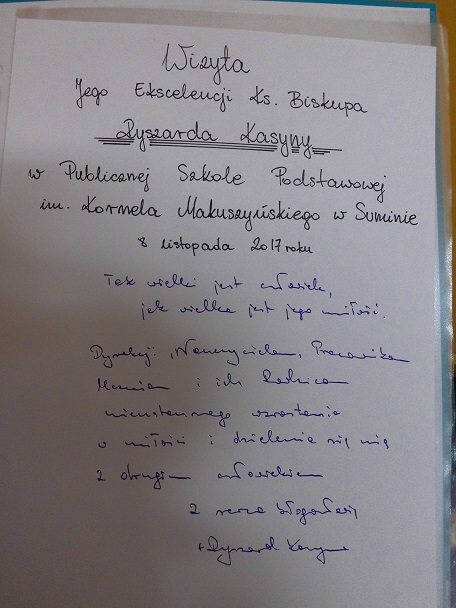 Wizyta
Jego Ekscelencji Ks. Biskupa
Ryszarda Kasyny
w Publicznej Szkole Podstawowej
im. Kornela Makuszyńskiego w Suminie
8 listopada 2017 roku
Tak wielki jest człowiek,
jak wielka jest jego miłość.
Dyrekcji, Nauczycielom, Pracownikom
Uczniom i ich Rodzicom
nieustannego wzrastania
w miłości i dzielenia się nią
z drugim człowiekiem
z serca błogosławię
+ Ryszard Kasyna